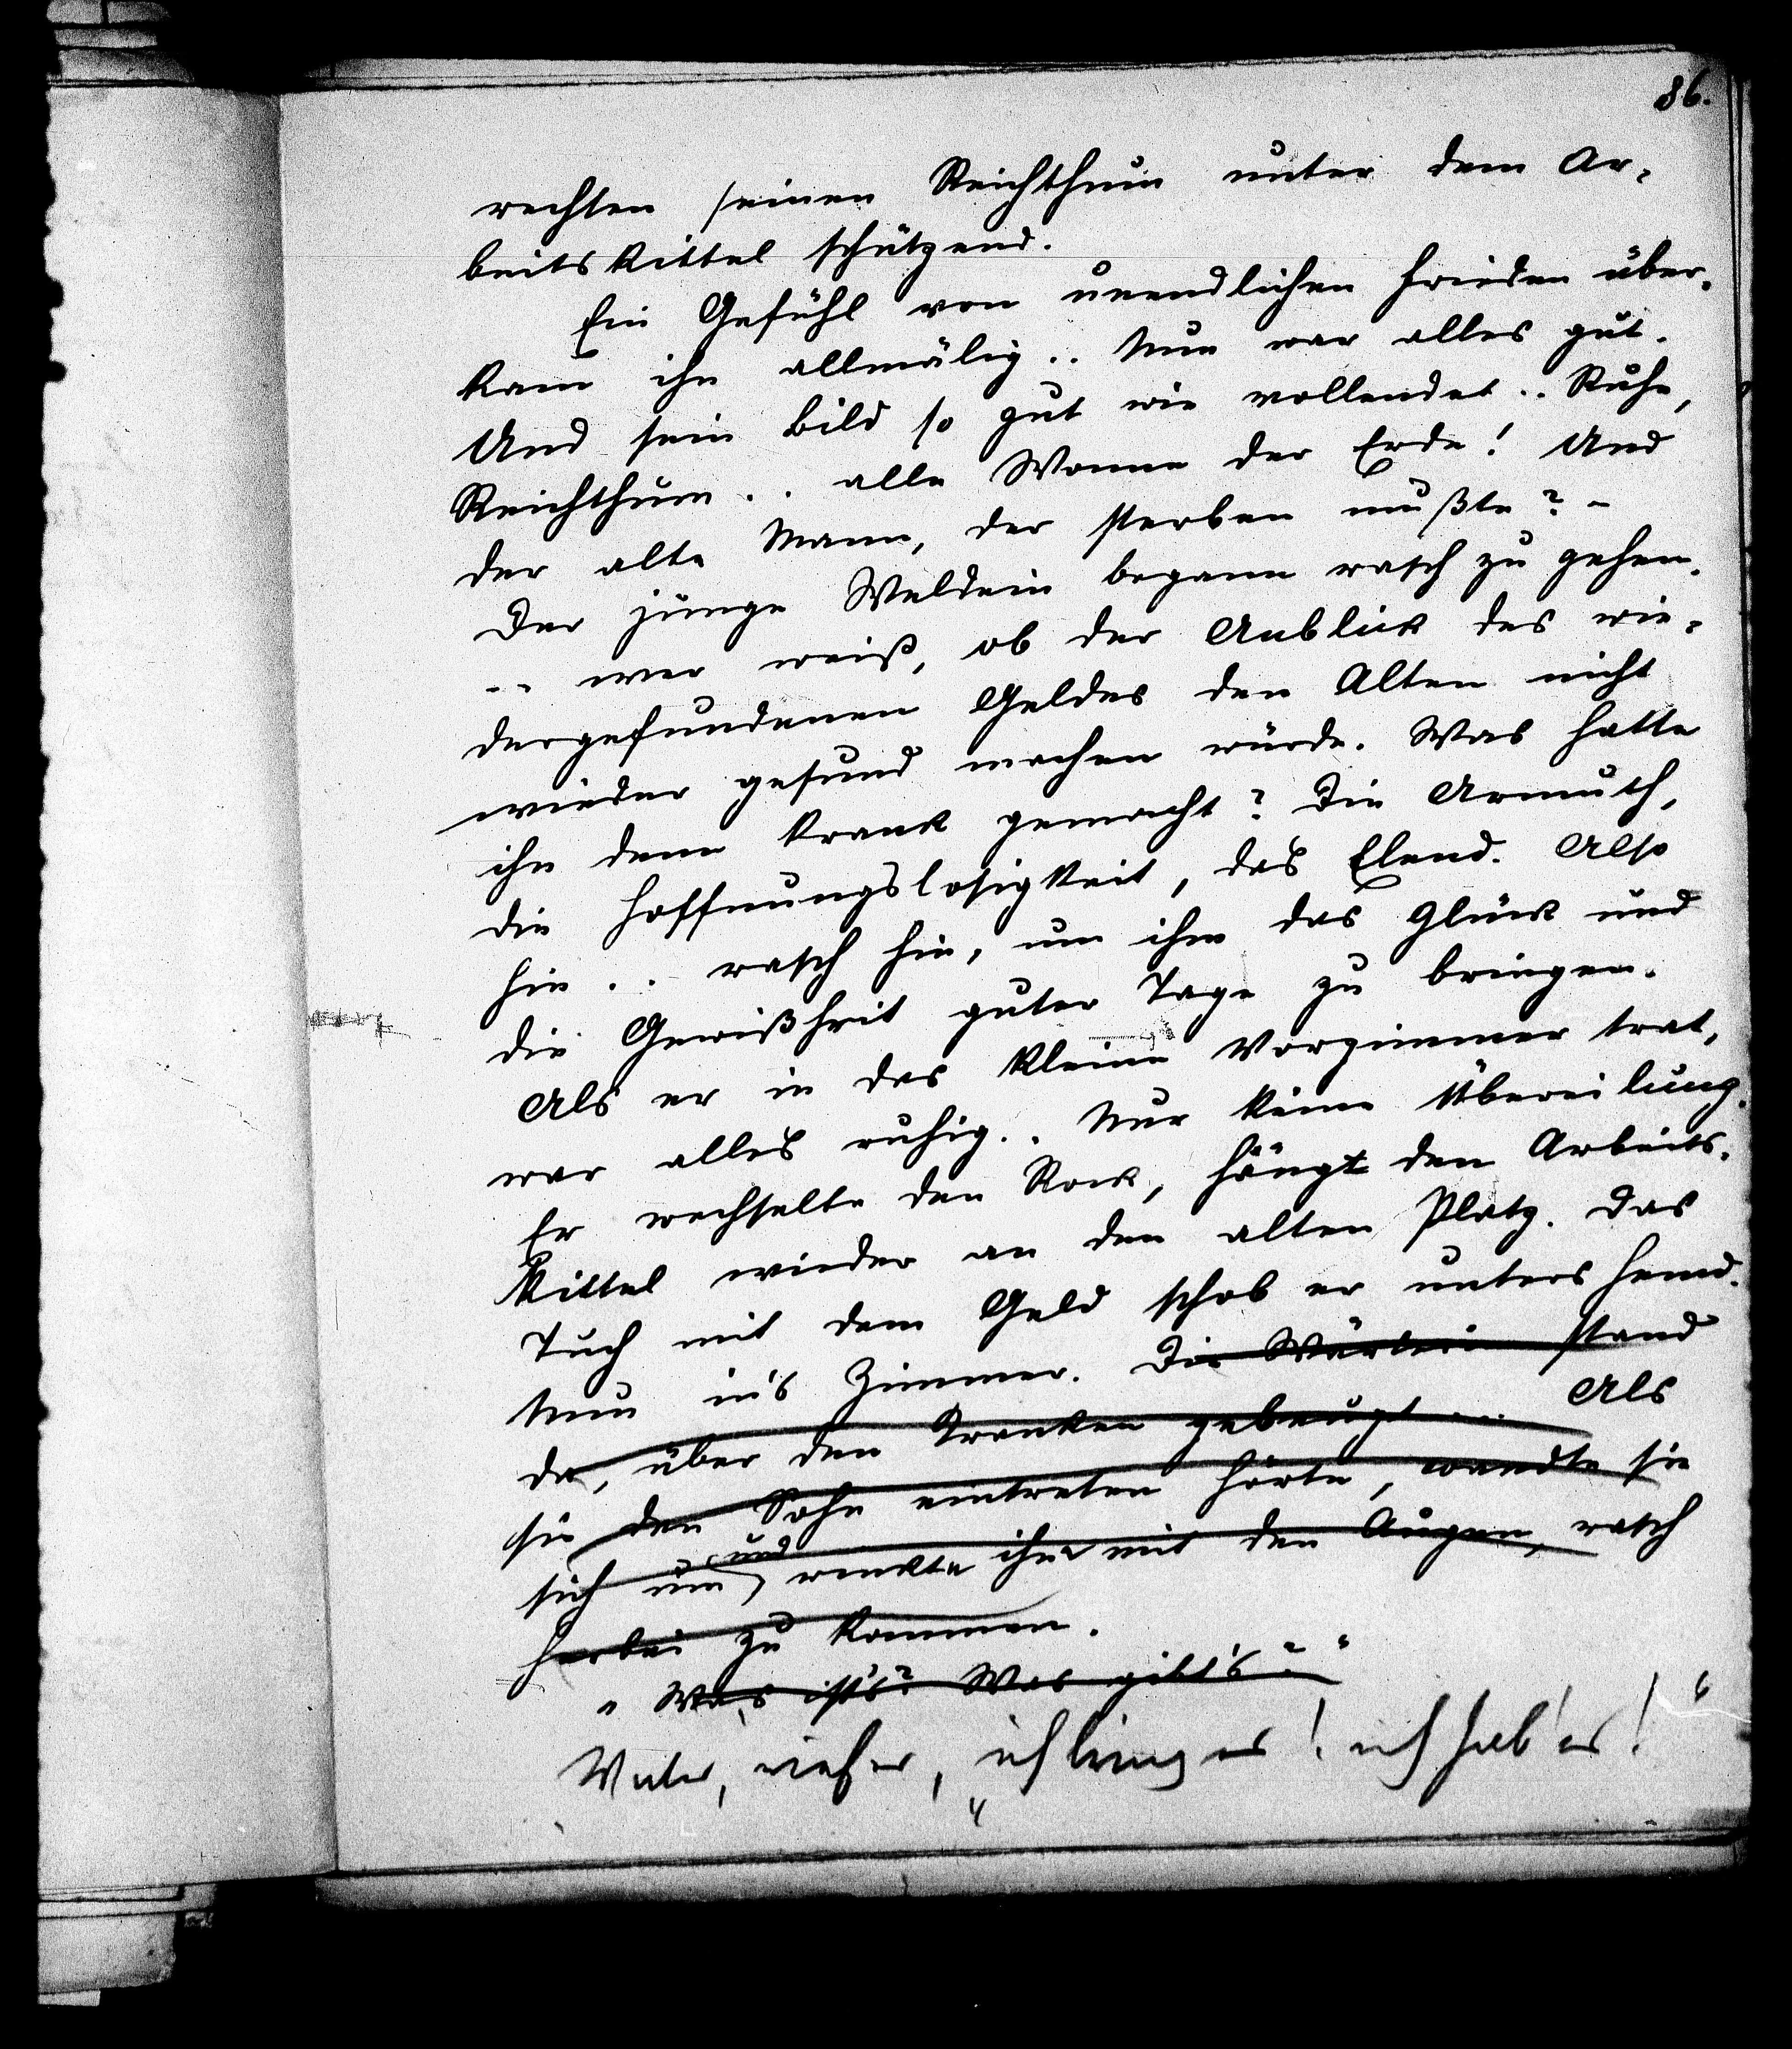 86.
rechten seinen Reichthum unter dem Ar-
beitskittel schützend.
Ein Gefühl von unendlichen Frieden über-
kam ihn allmälig.. Nun war alles gut.
Und sein Bild so gut wie vollendet.. Ruhe,
Reichthum.. alle Wonne der Erde! Und
der alte Mann, der sterben mußte? –
Der junge Weldein begann rasch zu gehen.
.. wer weiß, ob der Anblick des wie-
dergefundenen Geldes den Alten nicht
wieder gesund machen würde. Was hatte
ihn denn krank gemacht? Die Armuth,
die Hoffnungslosigkeit, das Elend. Also
hin.. rasch hin, um ihm das Glück und
die Gewißheit guter Tage zu bringen.
Als er in das kleine Vorzimmer trat,
war alles ruhig.. Nur keine Übereilung.
Er wechselte den Rock, hängt den Arbeits-
kittel wieder an den alten Platz. Das
Tuch mit dem Geld schob er unters Hemd.
Nun in's Zimmer. Die Wärterin stand
da, über den Kranken gebeugt ... Als
sie den Sohn eintreten hörte, wandte sie
und
sich um, winkte ihm mit den Augen, rasch
herbei zu kommen.
„Was ist's? Was gibt's?“
Vater, rief er, „ich bring es! ich hab' es!“